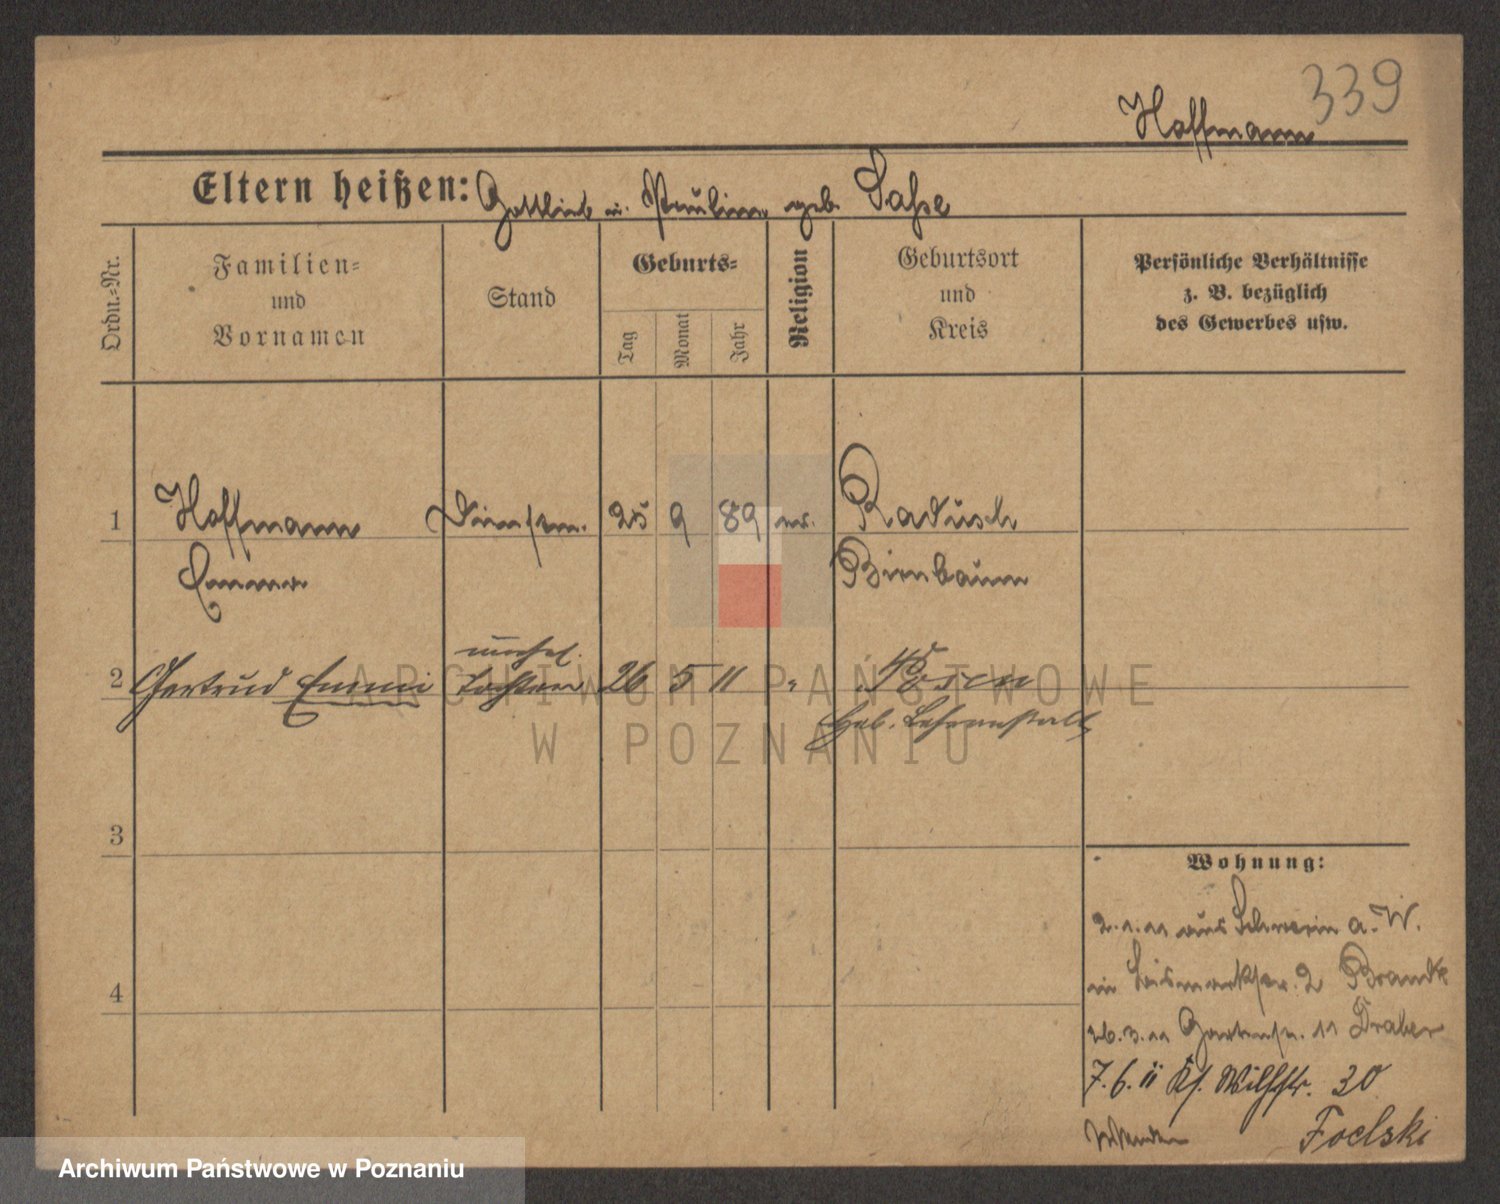 339
Hoffmann
Eltern heißen: Gottlieb u. Pauline geb. Saße
Ordn.-Nr.
Familien-
und
Vornamen
Stand
Geburts-
Tag
Monat
Jahr
Religion
Geburtsort
und
Kreis
Persönliche Verhältnisse
z. B. bezüglich
des Gewerbes usw.
1 Hoffmann 25 9 89 ev. Radusch
Emma Birnbaum
unehel.
2 Gertrud Emmi Tochter 26 5 11 " Posen
Heb. Lehranstalt
3
4
Wohnung:
2.1.11 aus Schwerin a. W.
in Bismarckstr. 2 Brandt
26.3.11 Gartenstr. 11 Draber
7.6.11 Ks. Wilhstr. 30
Wenden Foelski
ARCHIWUM PAŃSTWOWE
W POZNANIU
Archiwum Państwowe w Poznaniu